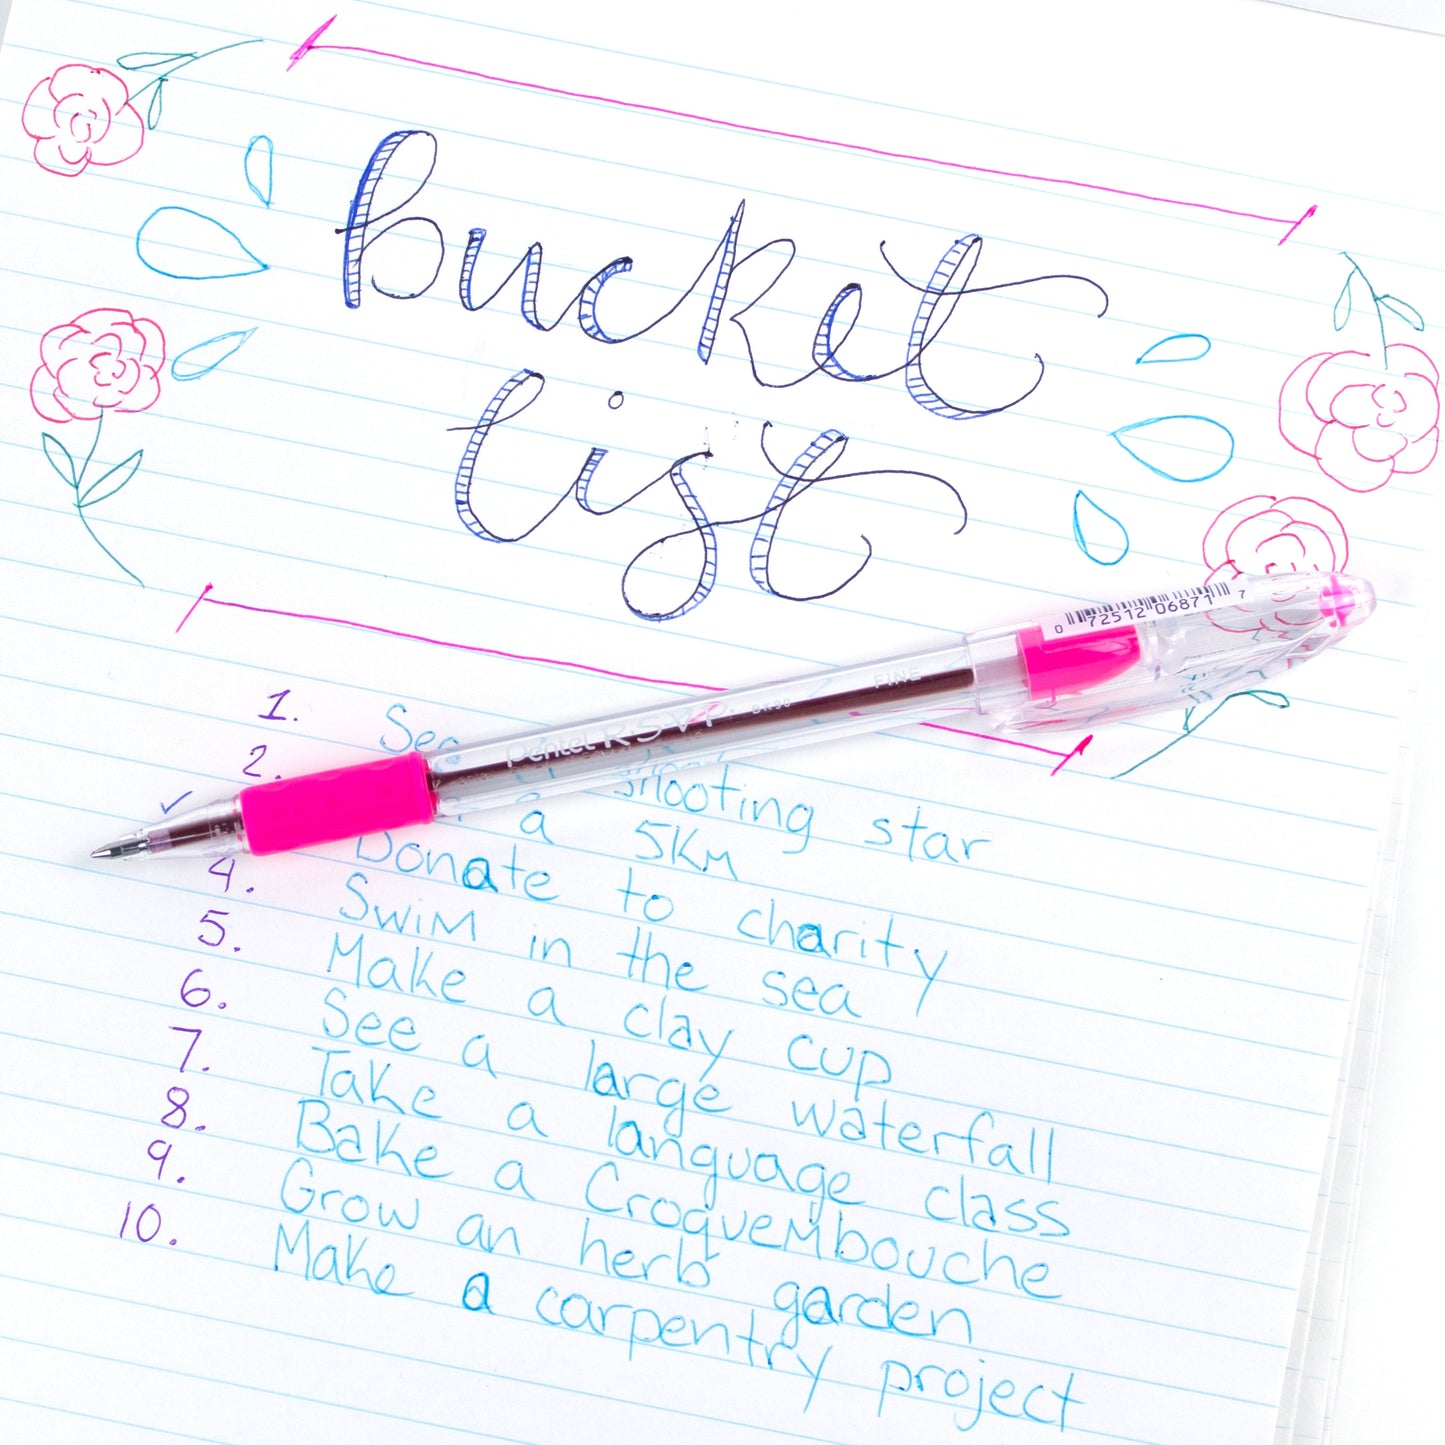 bucket
list
1. See shooting star
2. a 5Km
✓ Donate to charity
4. Swim in the sea
5. Make a clay cup
6. See a large waterfall
7. Take a language class
8. Bake a Croquembouche
9. Grow an herb garden
10. Make a carpentry project
Pentel R.S.V.P. BK90 FINE
0 72512 06871 7